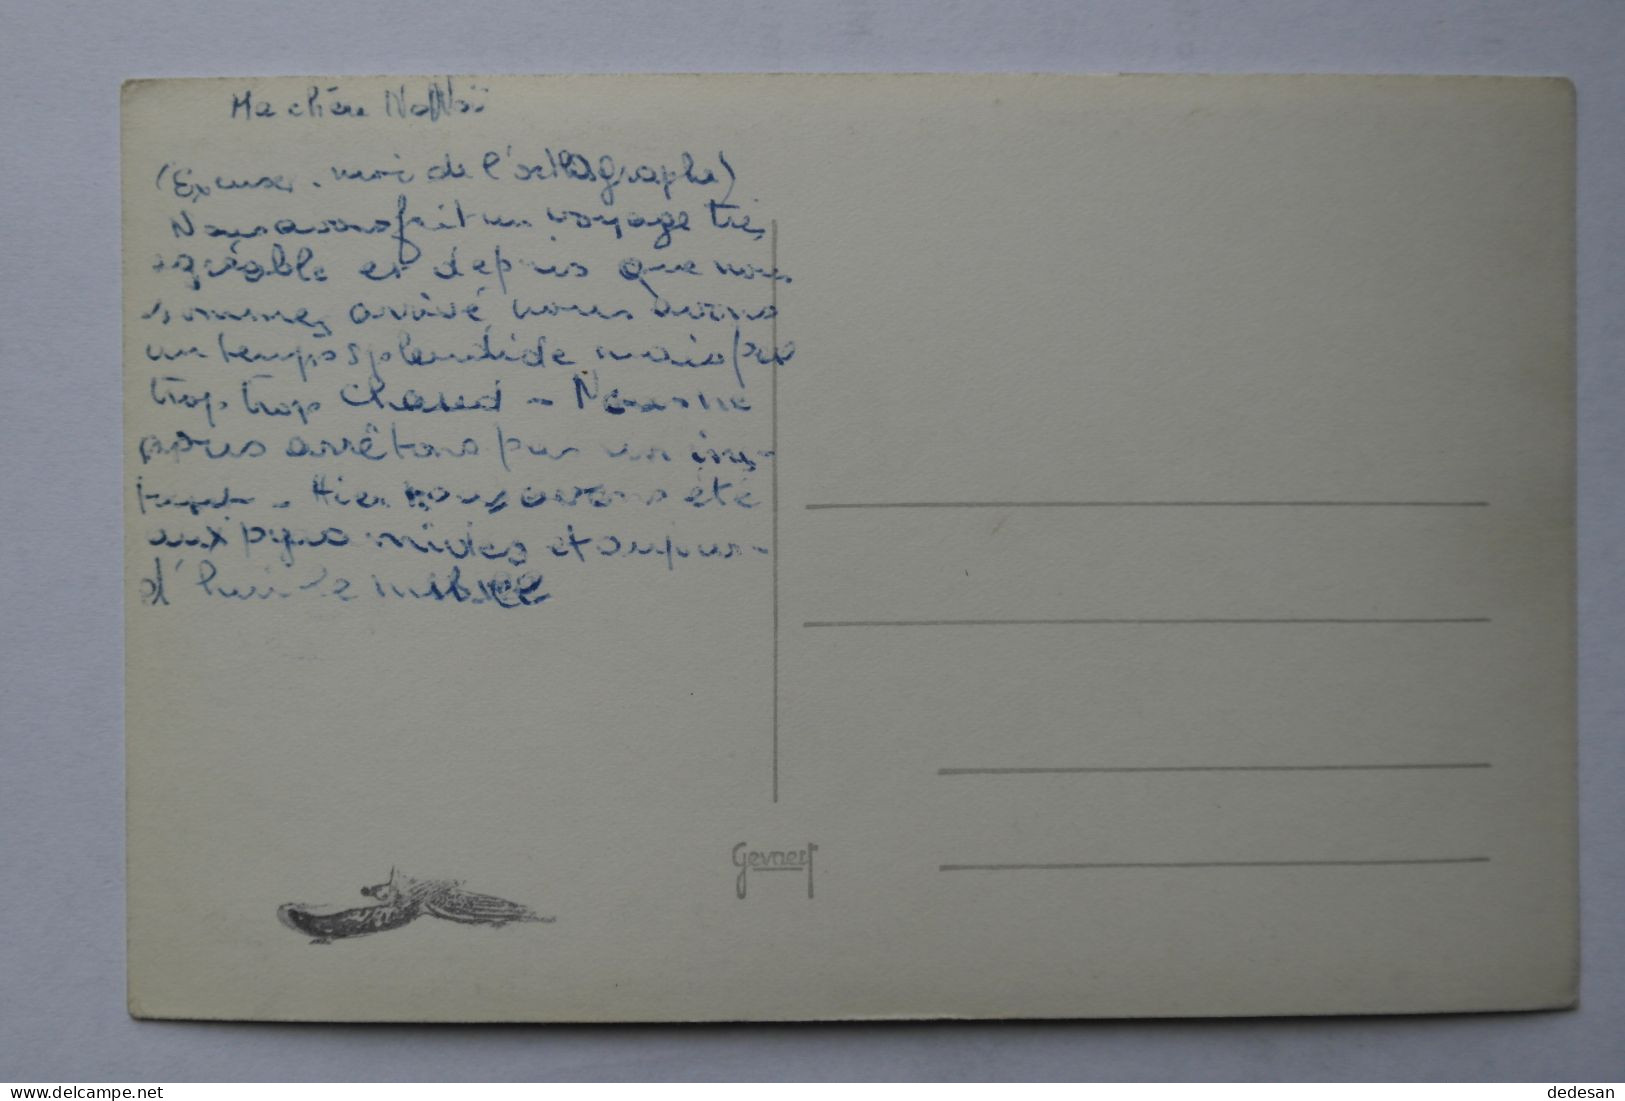 Ma chère
(Excuser-moi de l'orthographe)
Nous avons fait un voyage très
agréable et depuis que nous
sommes arrivé nous avons
un temps splendide mais pas
trop trop chaud - Nous ne
arrêtons pas un ins-
tant - Hier nous avons été
aux pyramides et aujour-
d'hui le
Gevaert
delcampe.net
dedesan